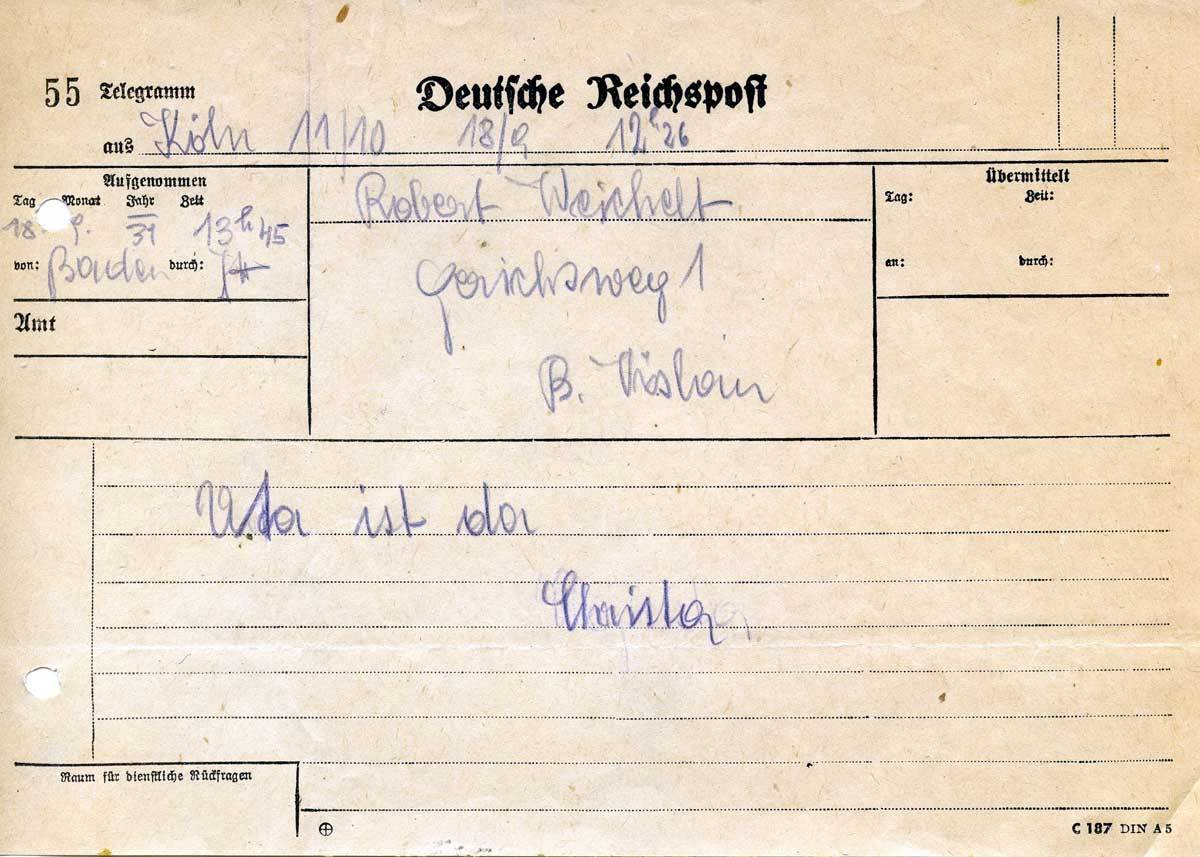 55 Telegramm Deutsche Reichspost
aus Köln 11/10 18/9 12 26
Aufgenommen
Tag Monat Jahr Zeit
18. 9. 31 13 h 45
von: durch:
Amt
Robert Weichelt
Gerichsweg 1
B.
Übermittelt
Tag: Zeit:
an: durch:
Uta ist da
Christa
Raum für dienstliche Rückfragen
C 187 DIN A 5